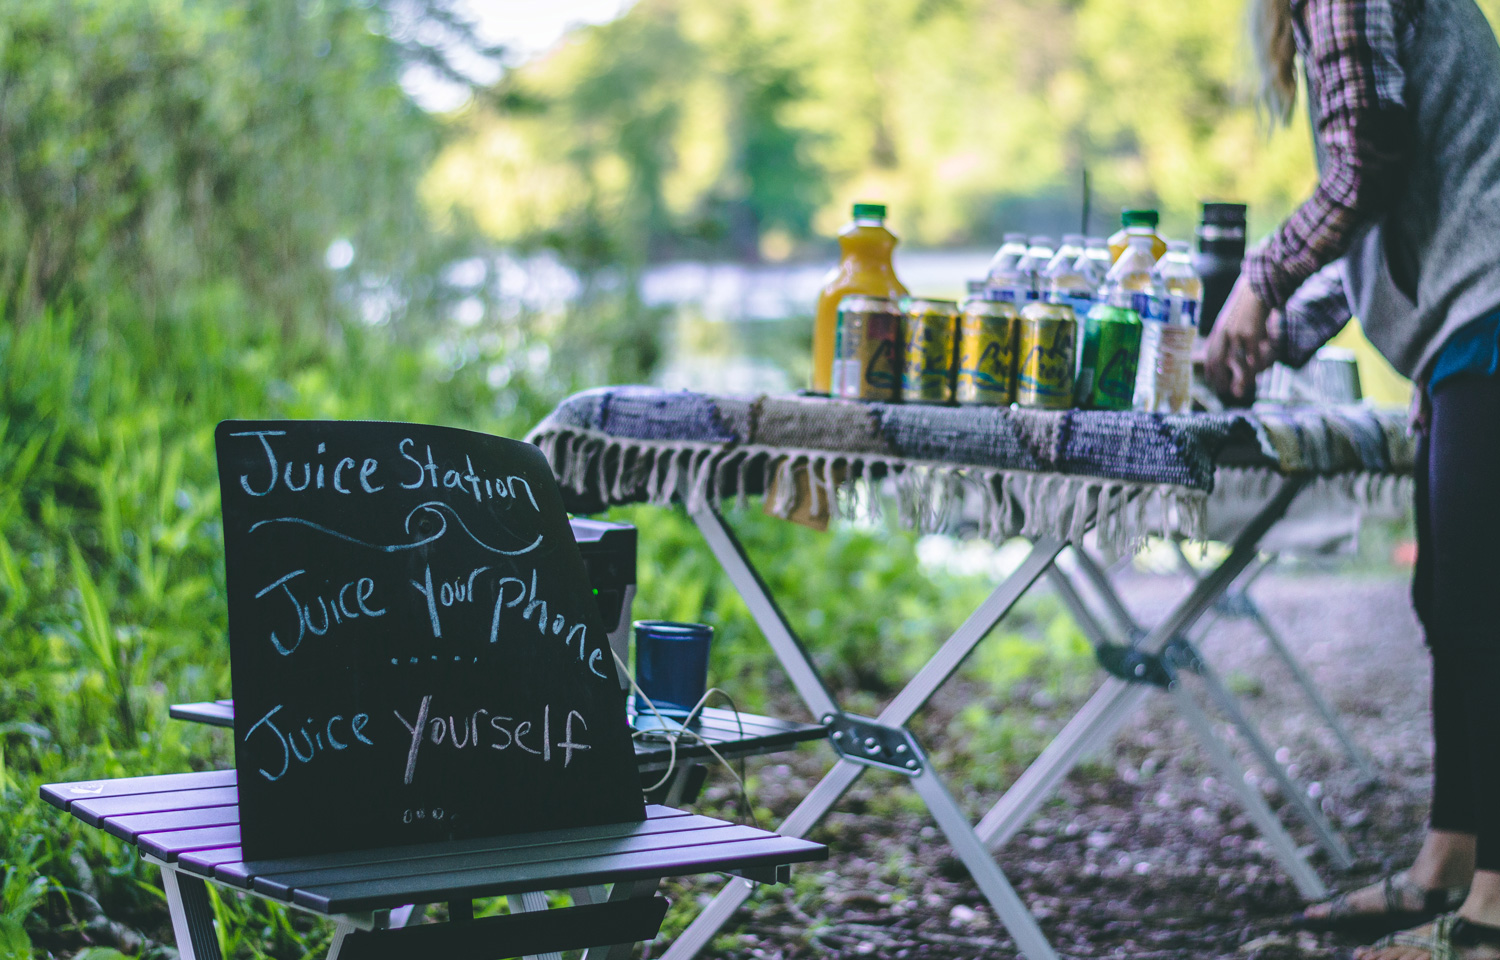 Juice Station
Juice Your phone
Juice Yourself